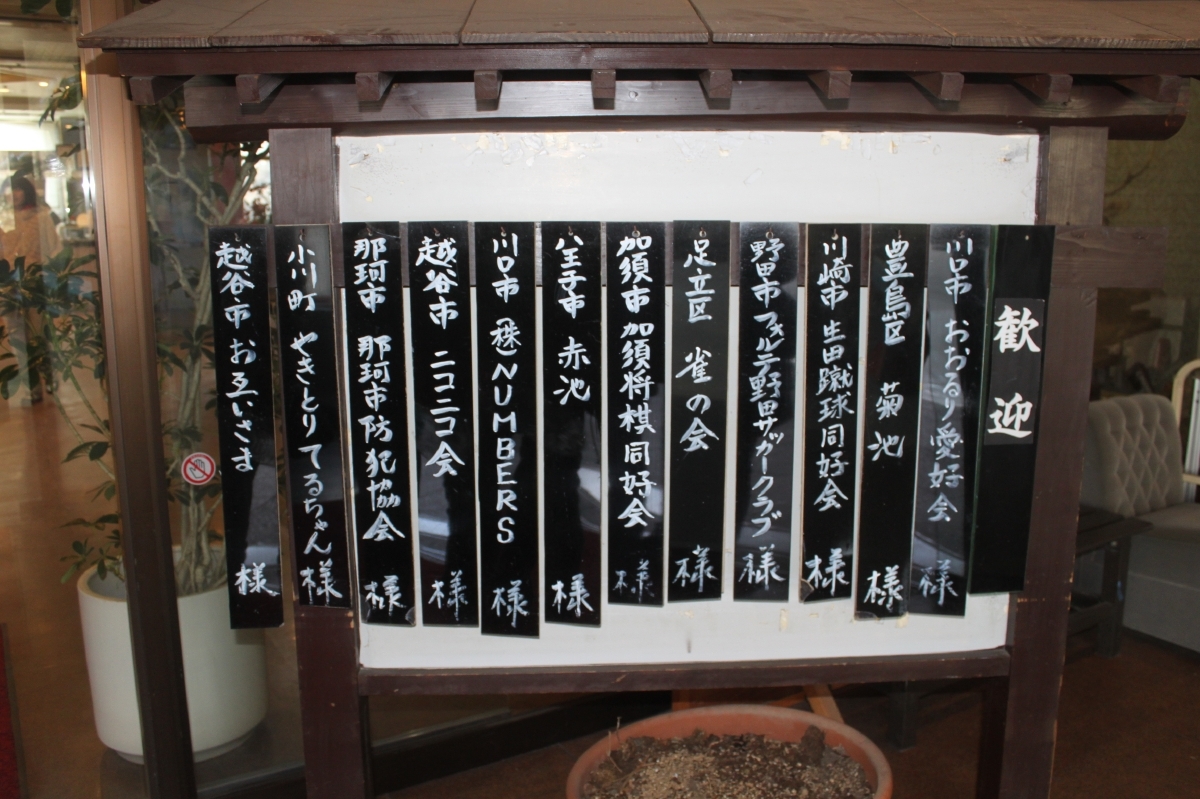 歓迎
川口市 おおるり愛好会 様
豊島区 菊池 様
川崎市 生田蹴球同好会 様
野田市 フォルテ野田サッカークラブ 様
足立区 雀の会 様
加須市 加須将棋同好会 様
八王子市 赤池 様
川口市 (株)NUMBERS 様
越谷市 ニコニコ会 様
那珂市 那珂市防犯協会 様
小川町 やきとりてるちゃん 様
越谷市 お互いさま 様